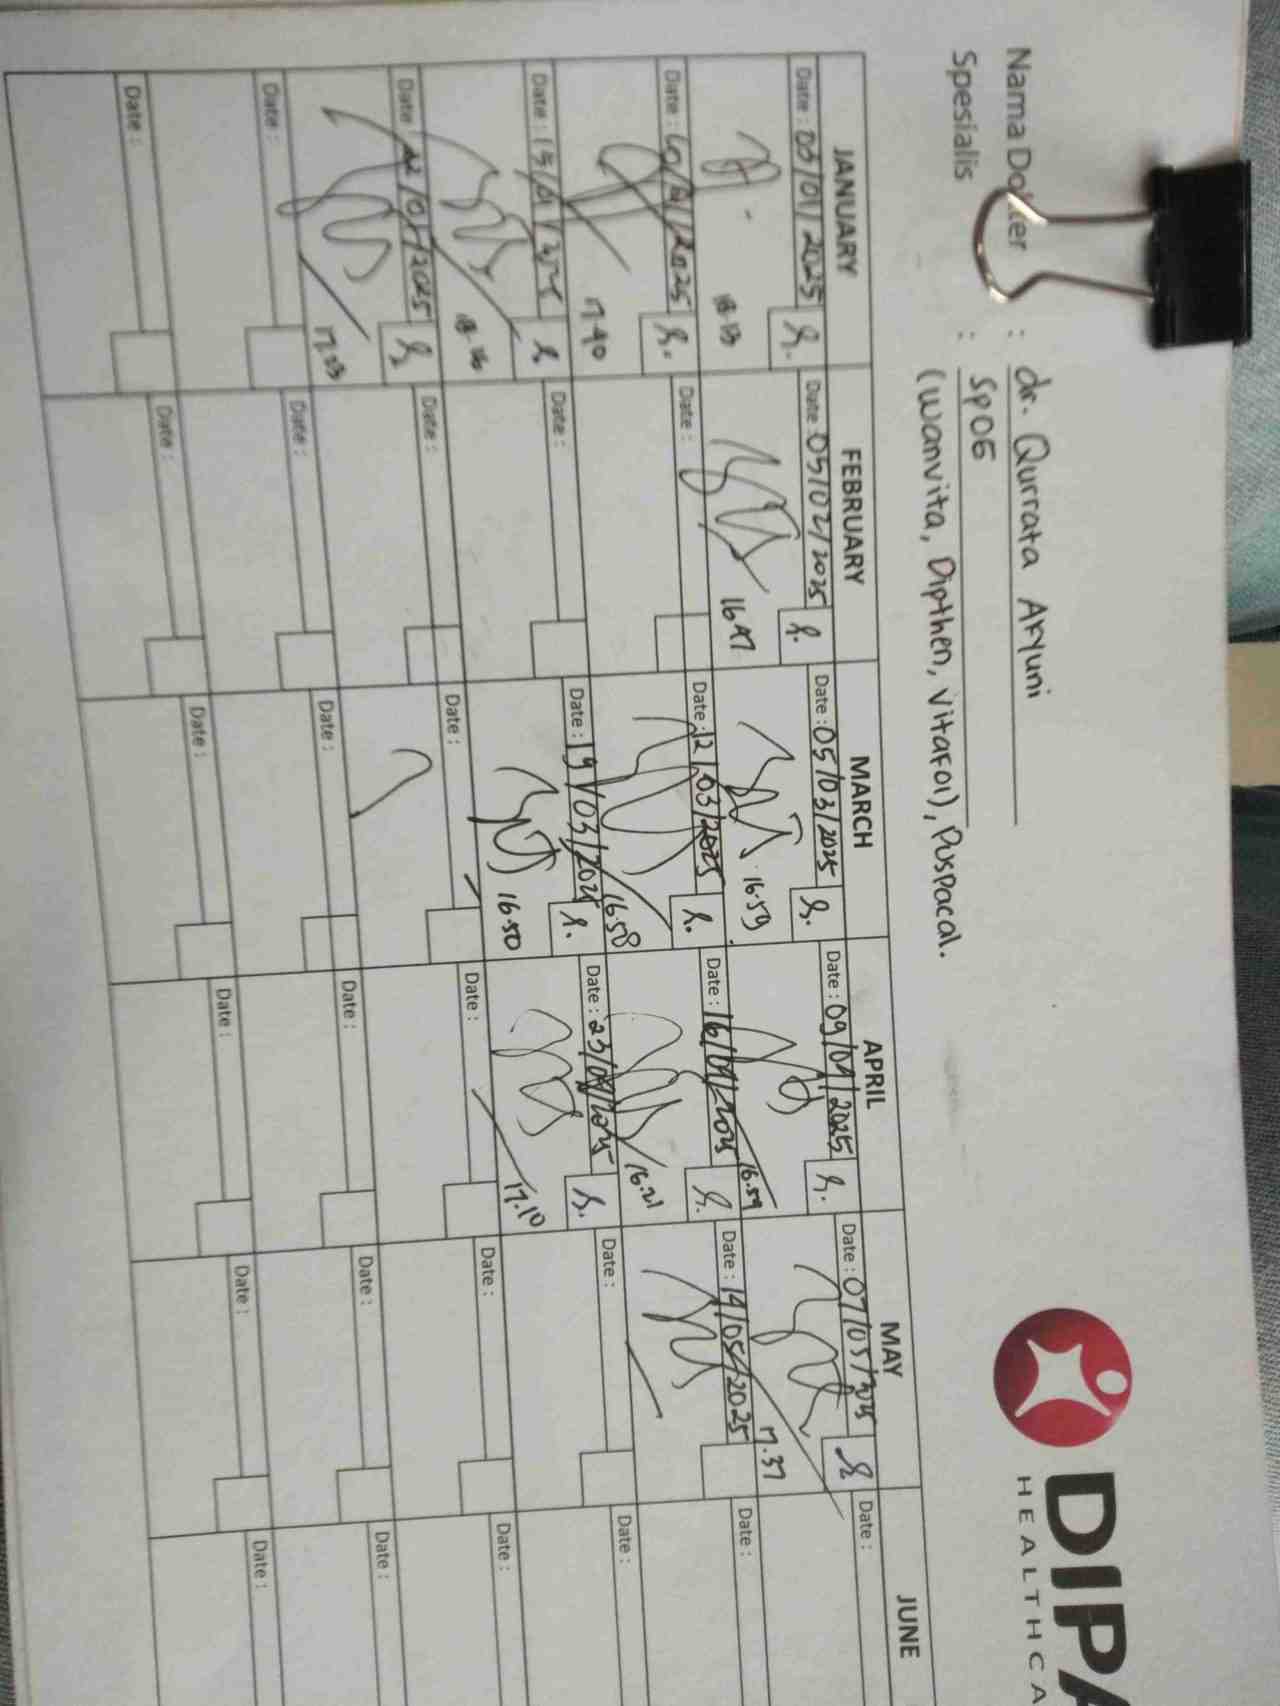 DIPA
HEALTHCA
Nama Dokter : dr. Qurrata Aryuni
Spesialis : SpOG
(Wanvita, Dipthen, Vitafol), Puspacal.
JANUARY FEBRUARY MARCH APRIL MAY JUNE
Date : 03/01/2025 Date : 05/02/2025 Date : 05/03/2025 Date : 09/04/2025 Date : 07/05/2025 Date :
16.47 16.59 16.59 17.37
Date : Date : Date : 12/03/2025 Date : 16/04/2025 Date : 14/05/2025 Date :
17.40 16.58 16.21
Date : 15/01/2025 Date : Date : 19/03/2025 Date : 23/04/2025 Date : Date :
16.50 17.10
Date : 22/01/2025 Date : Date : Date : Date : Date :
Date : Date : Date : Date : Date : Date :
Date : Date : Date : Date : Date :